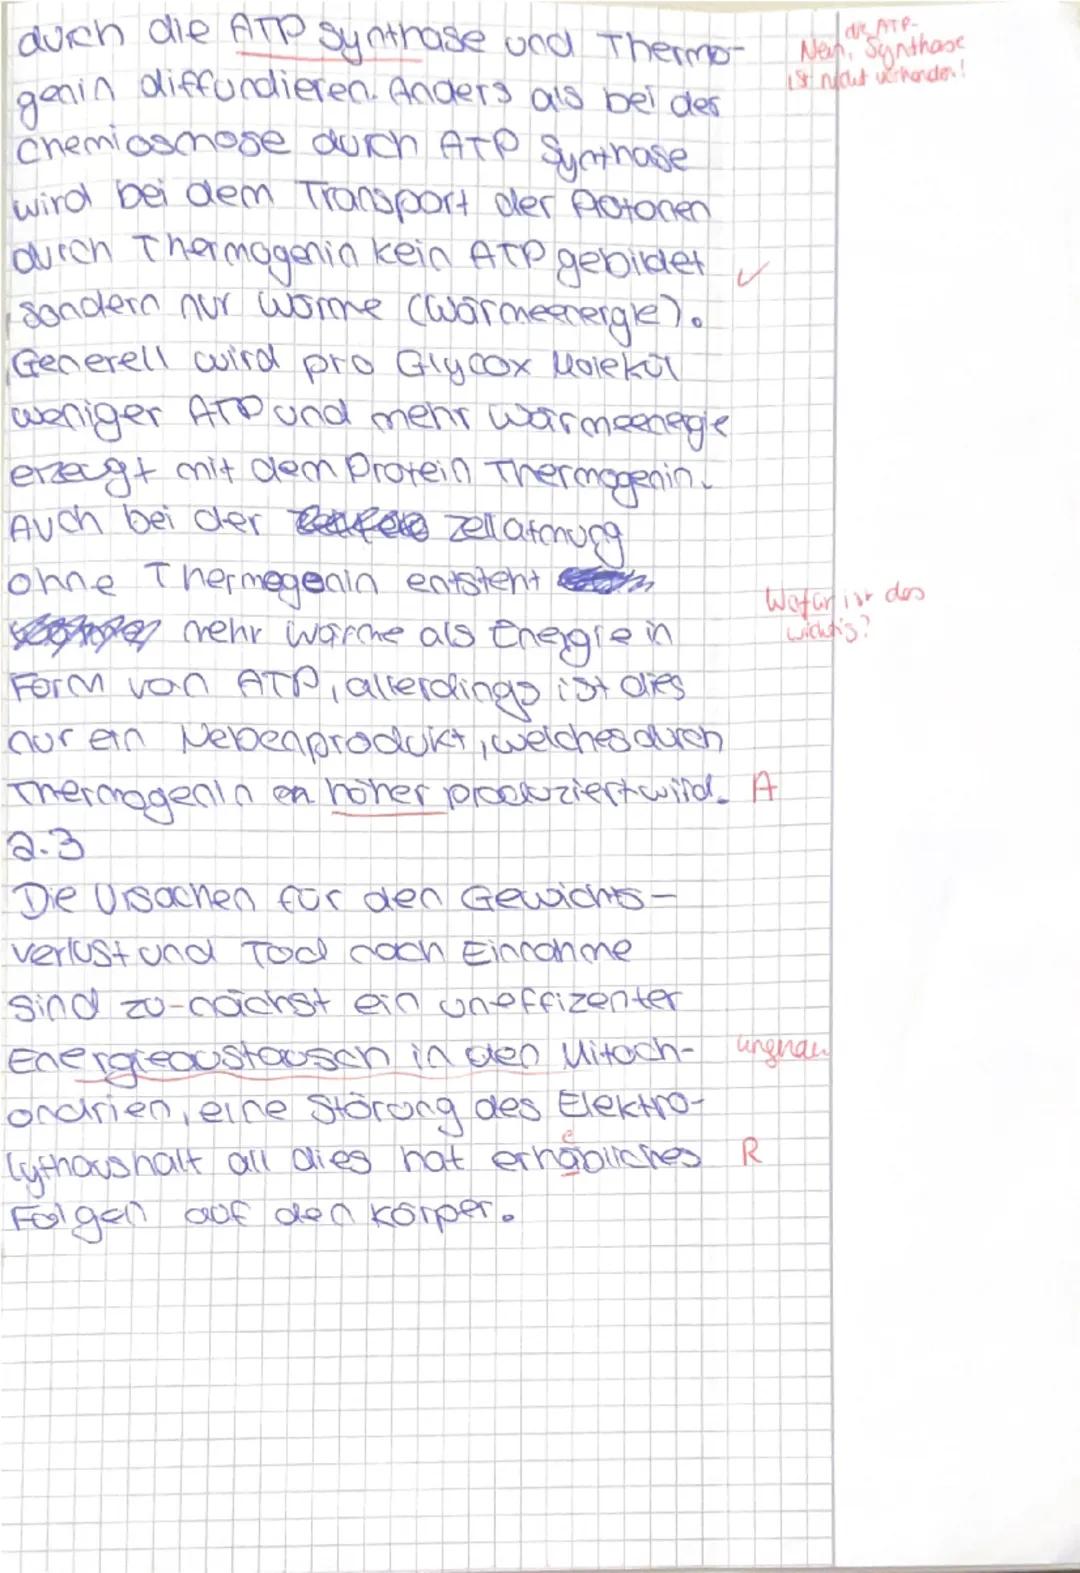 durch die ATP Synthase und Thermo-
die ATP-
Nein, Synthase
ist nicht vorhanden!
genin diffundieren. Anders als bei der
Chemiosmose durch ATP Synthase
wird bei dem Transport der Protonen
durch Thermogenin kein ATP gebildet ✓
sondern nur Wärme (Wärmeenergie).
Generell wird pro Glycox Molekül
weniger ATP und mehr Wärmeenegie
erzeugt mit dem Protein Thermogenin.
Auch bei der Zellatmung
ohne Thermogenin entsteht
Wofür ist das
wichtig?
mehr Wärme als Energie in
Form von ATP, allerdings ist dies
nur ein Nebenprodukt, welches durch
Thermogenin en höher produziert wird. A
2.3
Die Ursachen für den Gewichts-
verlust und Tod nach Einnahme
sind zu-nächst ein uneffizenter
Energieaustausch in den Mitoch- ungnau
ondrien, eine Störung des Elektro-
lythaushalt all dies hat erhäbliches R
e
Folgen auf den Körper.